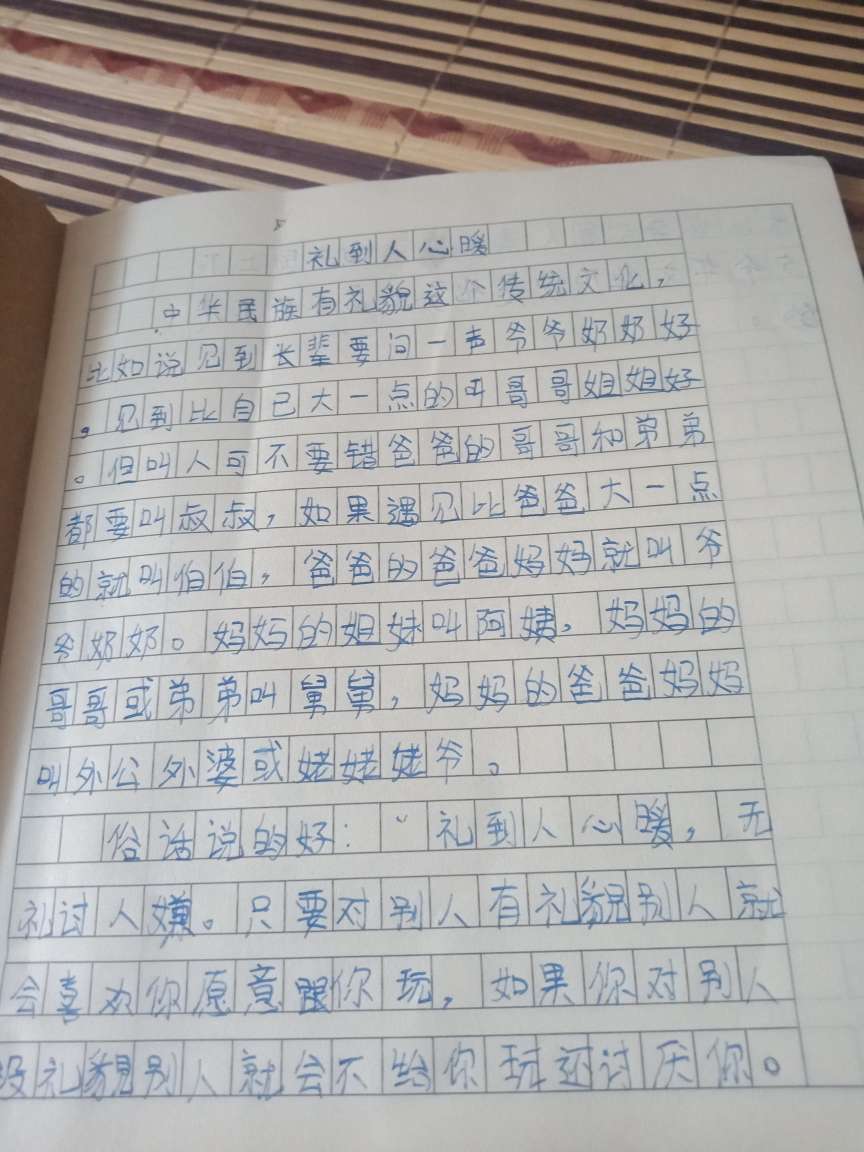 礼到人心暖
中华民族有礼貌这个传统文化，
比如说见到长辈要问一声爷爷奶奶好
。见到比自己大一点的叫哥哥姐姐好
。但叫人可不要错爸爸的哥哥和弟弟
都要叫叔叔，如果遇见比爸爸大一点
的就叫伯伯，爸爸的爸爸妈妈就叫爷
爷奶奶。妈妈的姐妹叫阿姨，妈妈的
哥哥或弟弟叫舅舅，妈妈的爸爸妈妈
叫外公外婆或姥姥姥爷。
俗话说的好：“礼到人心暖，无
礼讨人嫌。只要对别人有礼貌别人就
会喜欢你愿意跟你玩，如果你对别人
没礼貌别人就会不给你玩还讨厌你。